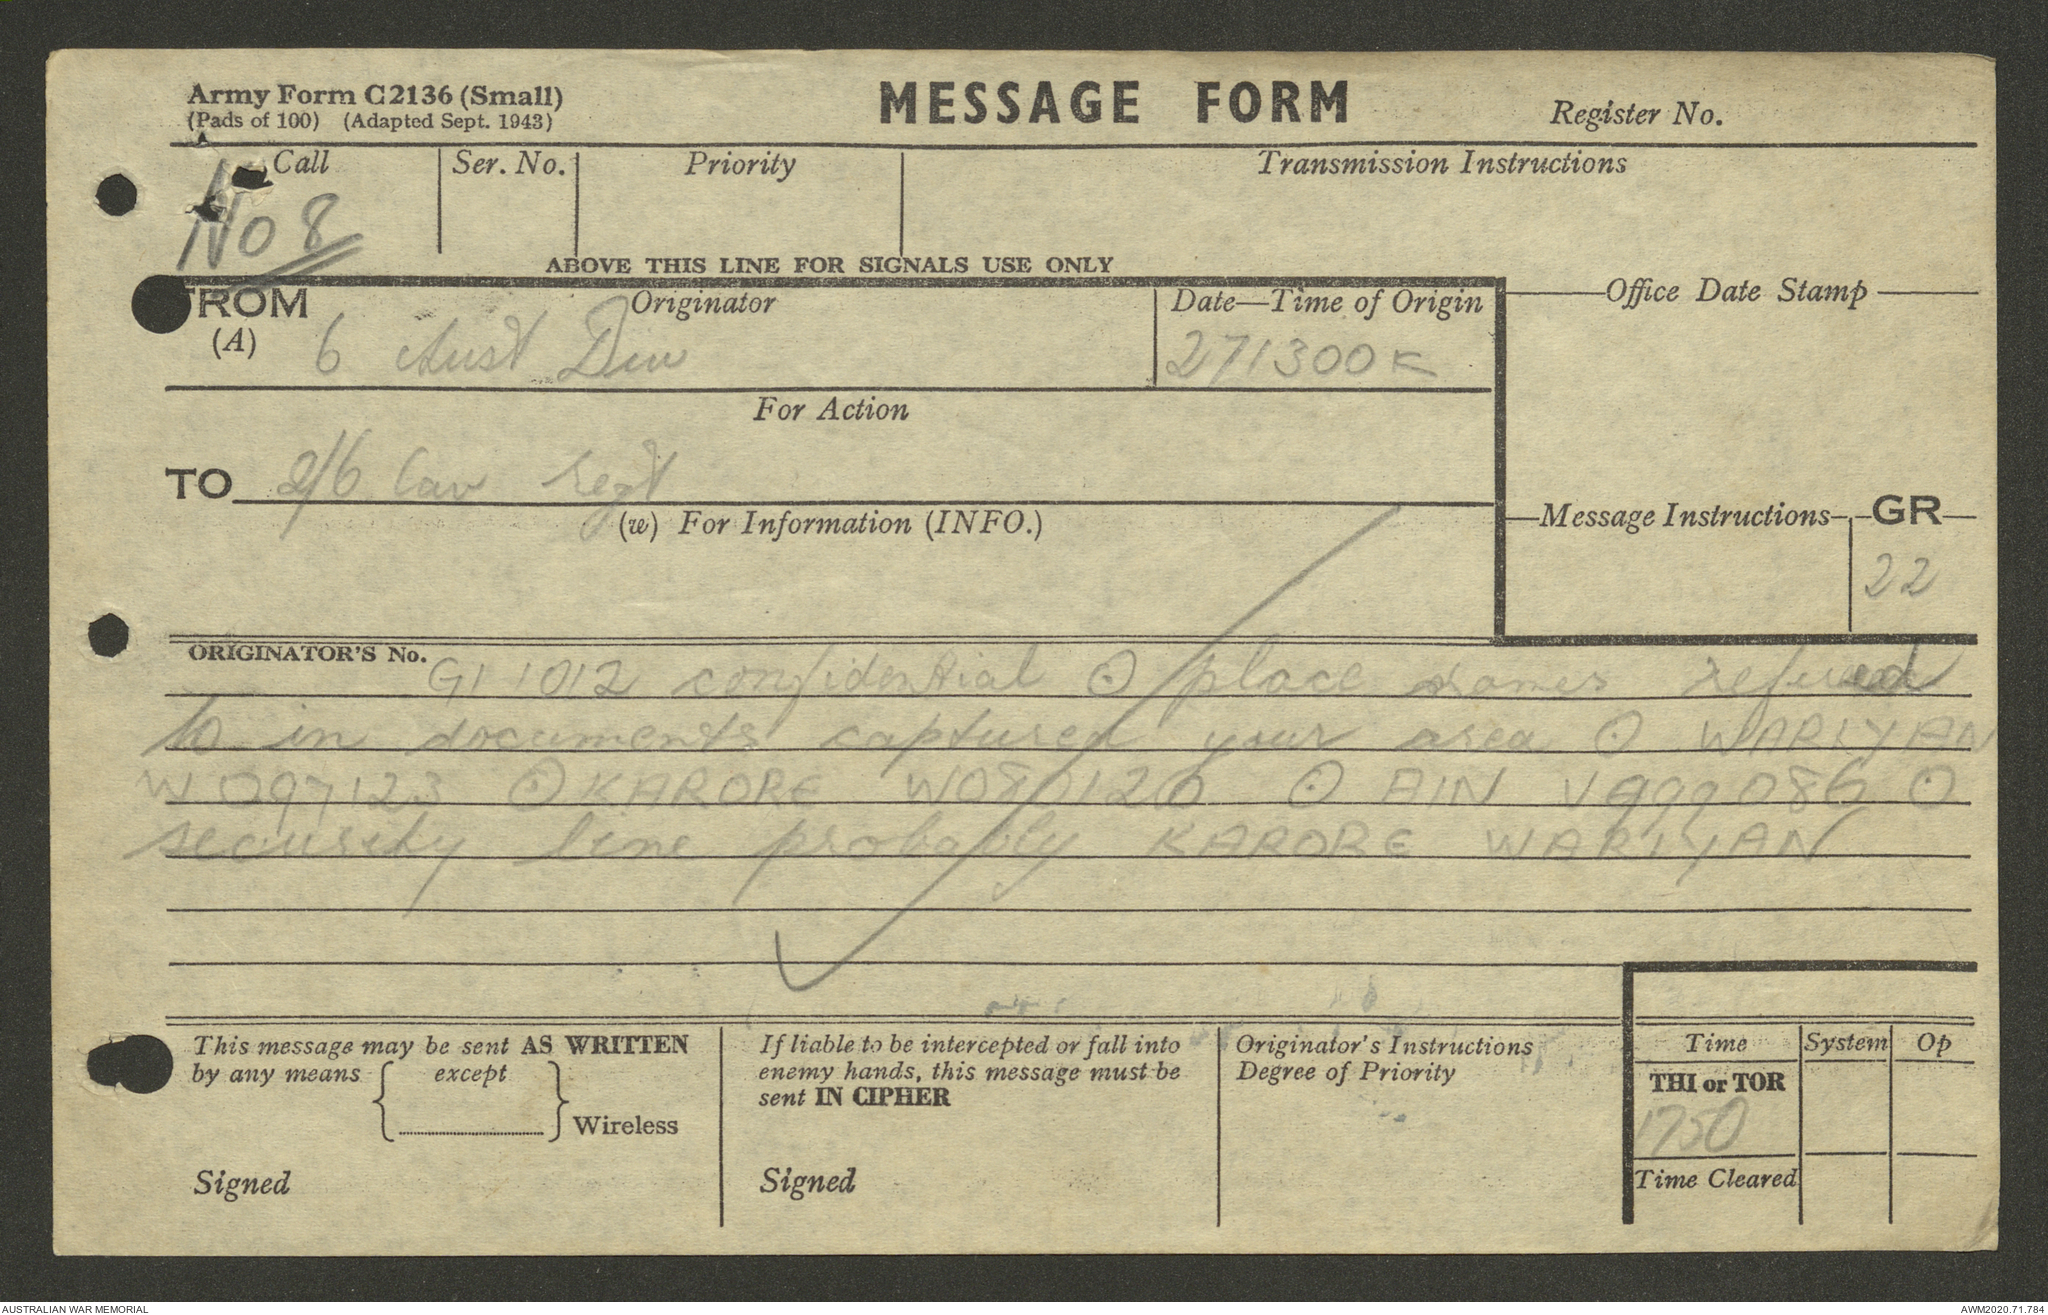 Army Form C2136 (Small)
(Pads of 100) (Adapted Sept. 1943)
MESSAGE FORM
Register No.
Call
Ser. No.
Priority
Transmission Instructions
No 8
ABOVE THIS LINE FOR SIGNALS USE ONLY
FROM
(A)
Originator
6 Aust Div
Date—Time of Origin
271300K
Office Date Stamp
For Action
TO 2/6 Cav Regt
(w) For Information (INFO.)
Message Instructions
GR
22
ORIGINATOR'S No.
GI 1012 confidential ⊙ place names referred
to in documents captured your area ⊙ WARIYAN
W097123 ⊙ KARORE W080120 ⊙ AIN V999086 ⊙
security line probably KARORE WARIYAN
This message may be sent AS WRITTEN
by any means { except
} Wireless
Signed
If liable to be intercepted or fall into
enemy hands, this message must be
sent IN CIPHER
Signed
Originator's Instructions
Degree of Priority
Time
System
Op
THI or TOR
1750
Time Cleared
AUSTRALIAN WAR MEMORIAL
AWM2020.71.784